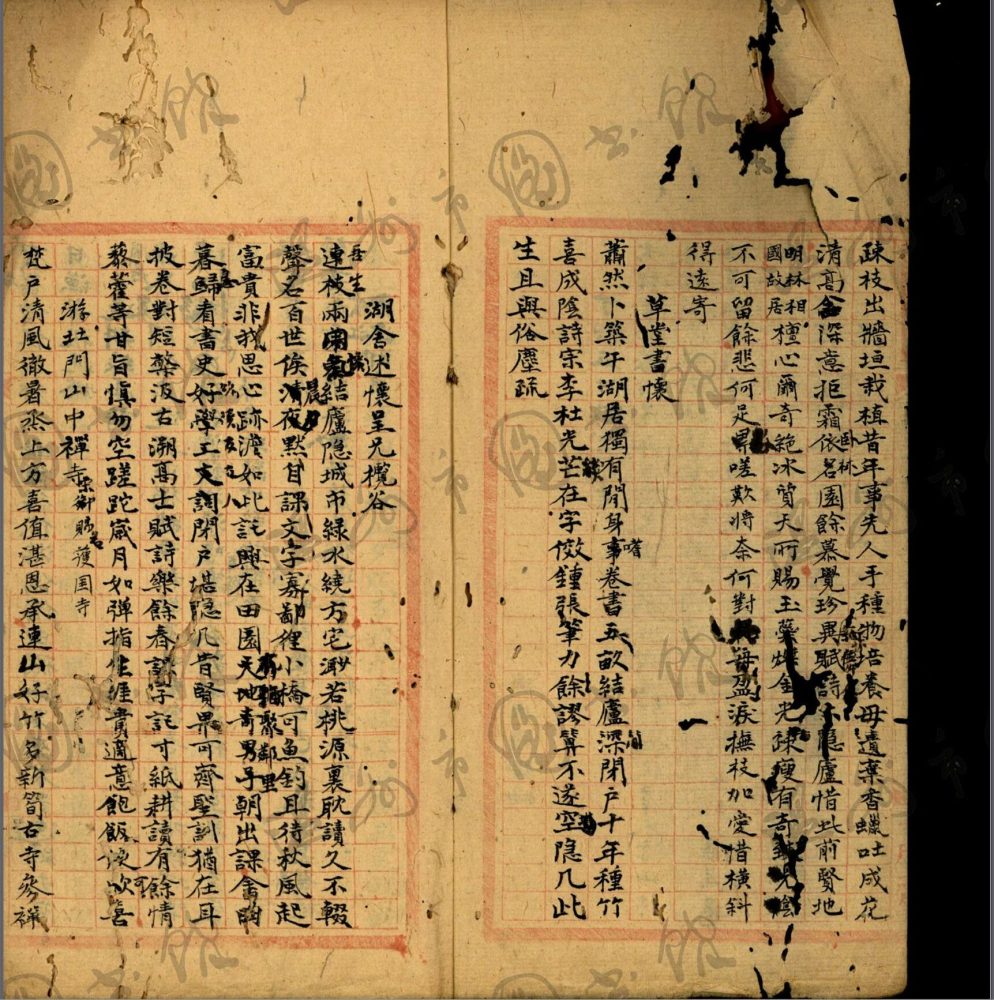 疎枝出牆垣栽植昔年事先人手種物培養毋遺棄香蠟吐成花
清高含深意拒霜依名園餘慕覺珍異賦詩小隱廬惜此前賢地
明林相國故居檀心爾奇絶冰質天所賜玉蘂燦金光疎瘦有奇
不可留餘悲何足異嗟歎將奈何對盈淚撫枝加愛惜橫斜
得遠寄
草堂書懷
蕭然卜築午湖居獨有閒身嗜卷書五畝結廬深閉戶十年種竹
喜成陰詩宗李杜光芒在字倣鍾張筆力餘謬算不遂空隱几此
生且與俗塵疏
湖舍述懷呈兄欖谷
吾生連枝兩結廬隱城市綠水繞方宅渺若桃源裏耽讀久不輟
聲名百世俟清夜默自課文字寡鄙俚小橋可魚釣且待秋風起
富貴非我思心跡澹如此託興在田園有酒聚鄰里天地奇男子朝出課舍
暮歸看書史好學工文詞閉戶堪隱几昔賢畀可齊聖訓猶在耳
披卷對短檠汲古溯高士賦詩樂餘春課字託寸紙耕讀有餘情
藜藿等甘旨慎勿空蹉跎歲月如彈指生涯貴適意飽飯
遊壯門山中禪寺宋御賜名護国寺
梵戶清風徹暑烝上方喜值湛恩承連山好竹多新筍古寺參禪